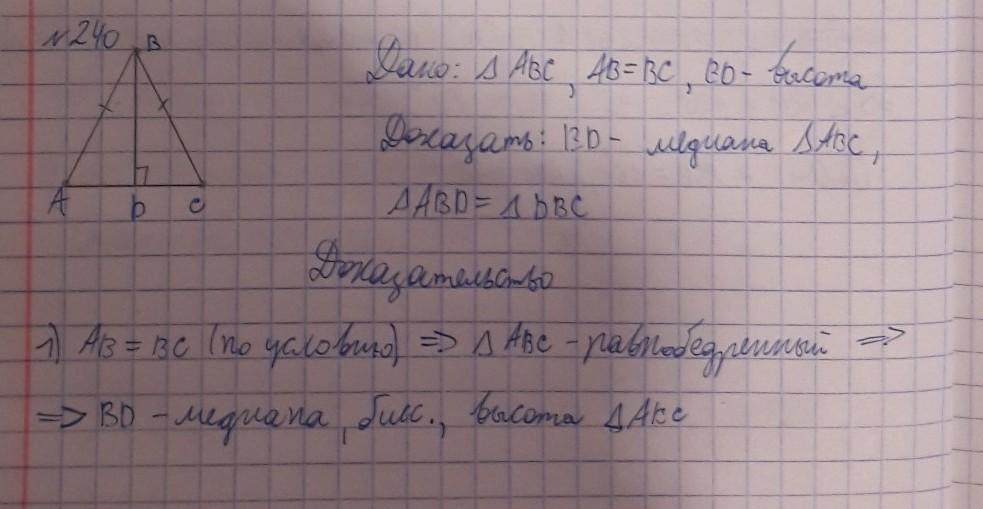 №240
B
A D C
Дано: Δ ABC, AB=BC, BD - высота
Доказать: BD - медиана ΔABC,
ΔABD = Δ DBC
Доказательство
1) AB = BC (по условию) => Δ ABC - равнобедренный =>
=> BD - медиана, бисс., высота ΔABC